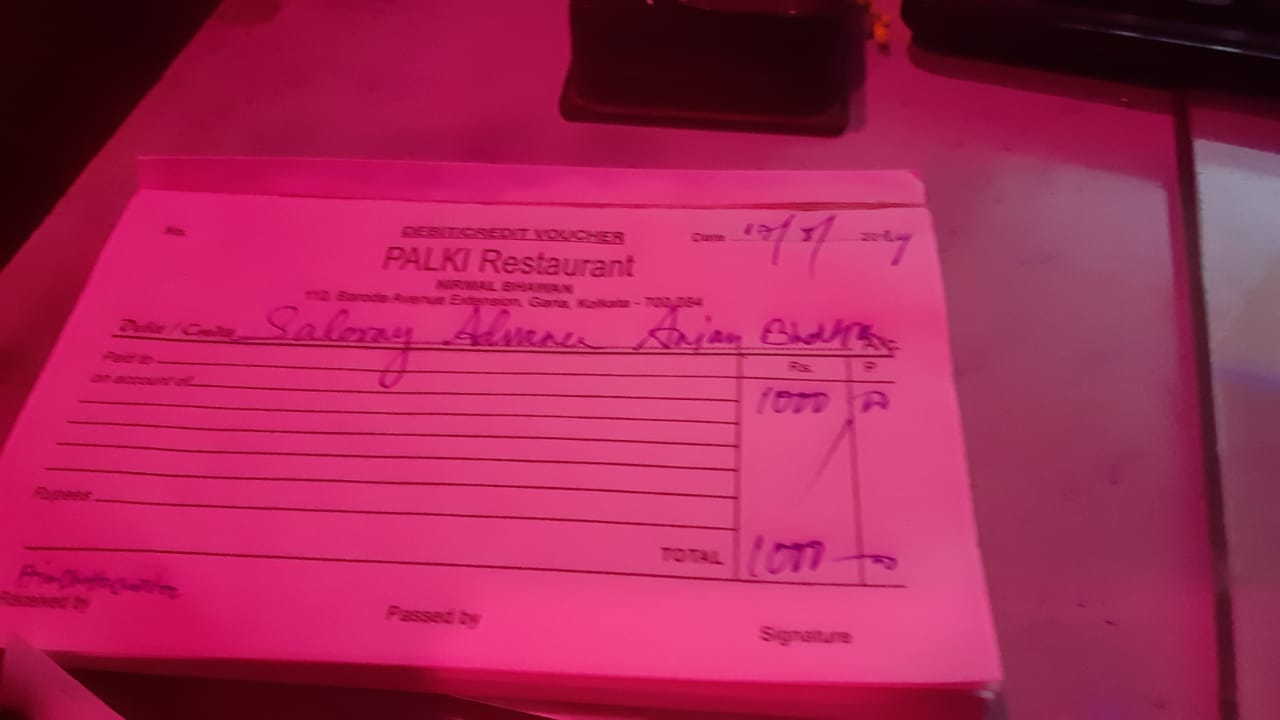 No.
DEBIT/CREDIT VOUCHER
Date
PALKI Restaurant
NIRMAL BHAWAN
110, Baroda Avenue Extension, Garia, Kolkata - 700 084
Debit / Credit Saloray Advance Anjan
Paid to
on account of
Rs. P.
1000
Rupees
TOTAL 1000
Received by Passed by Signature